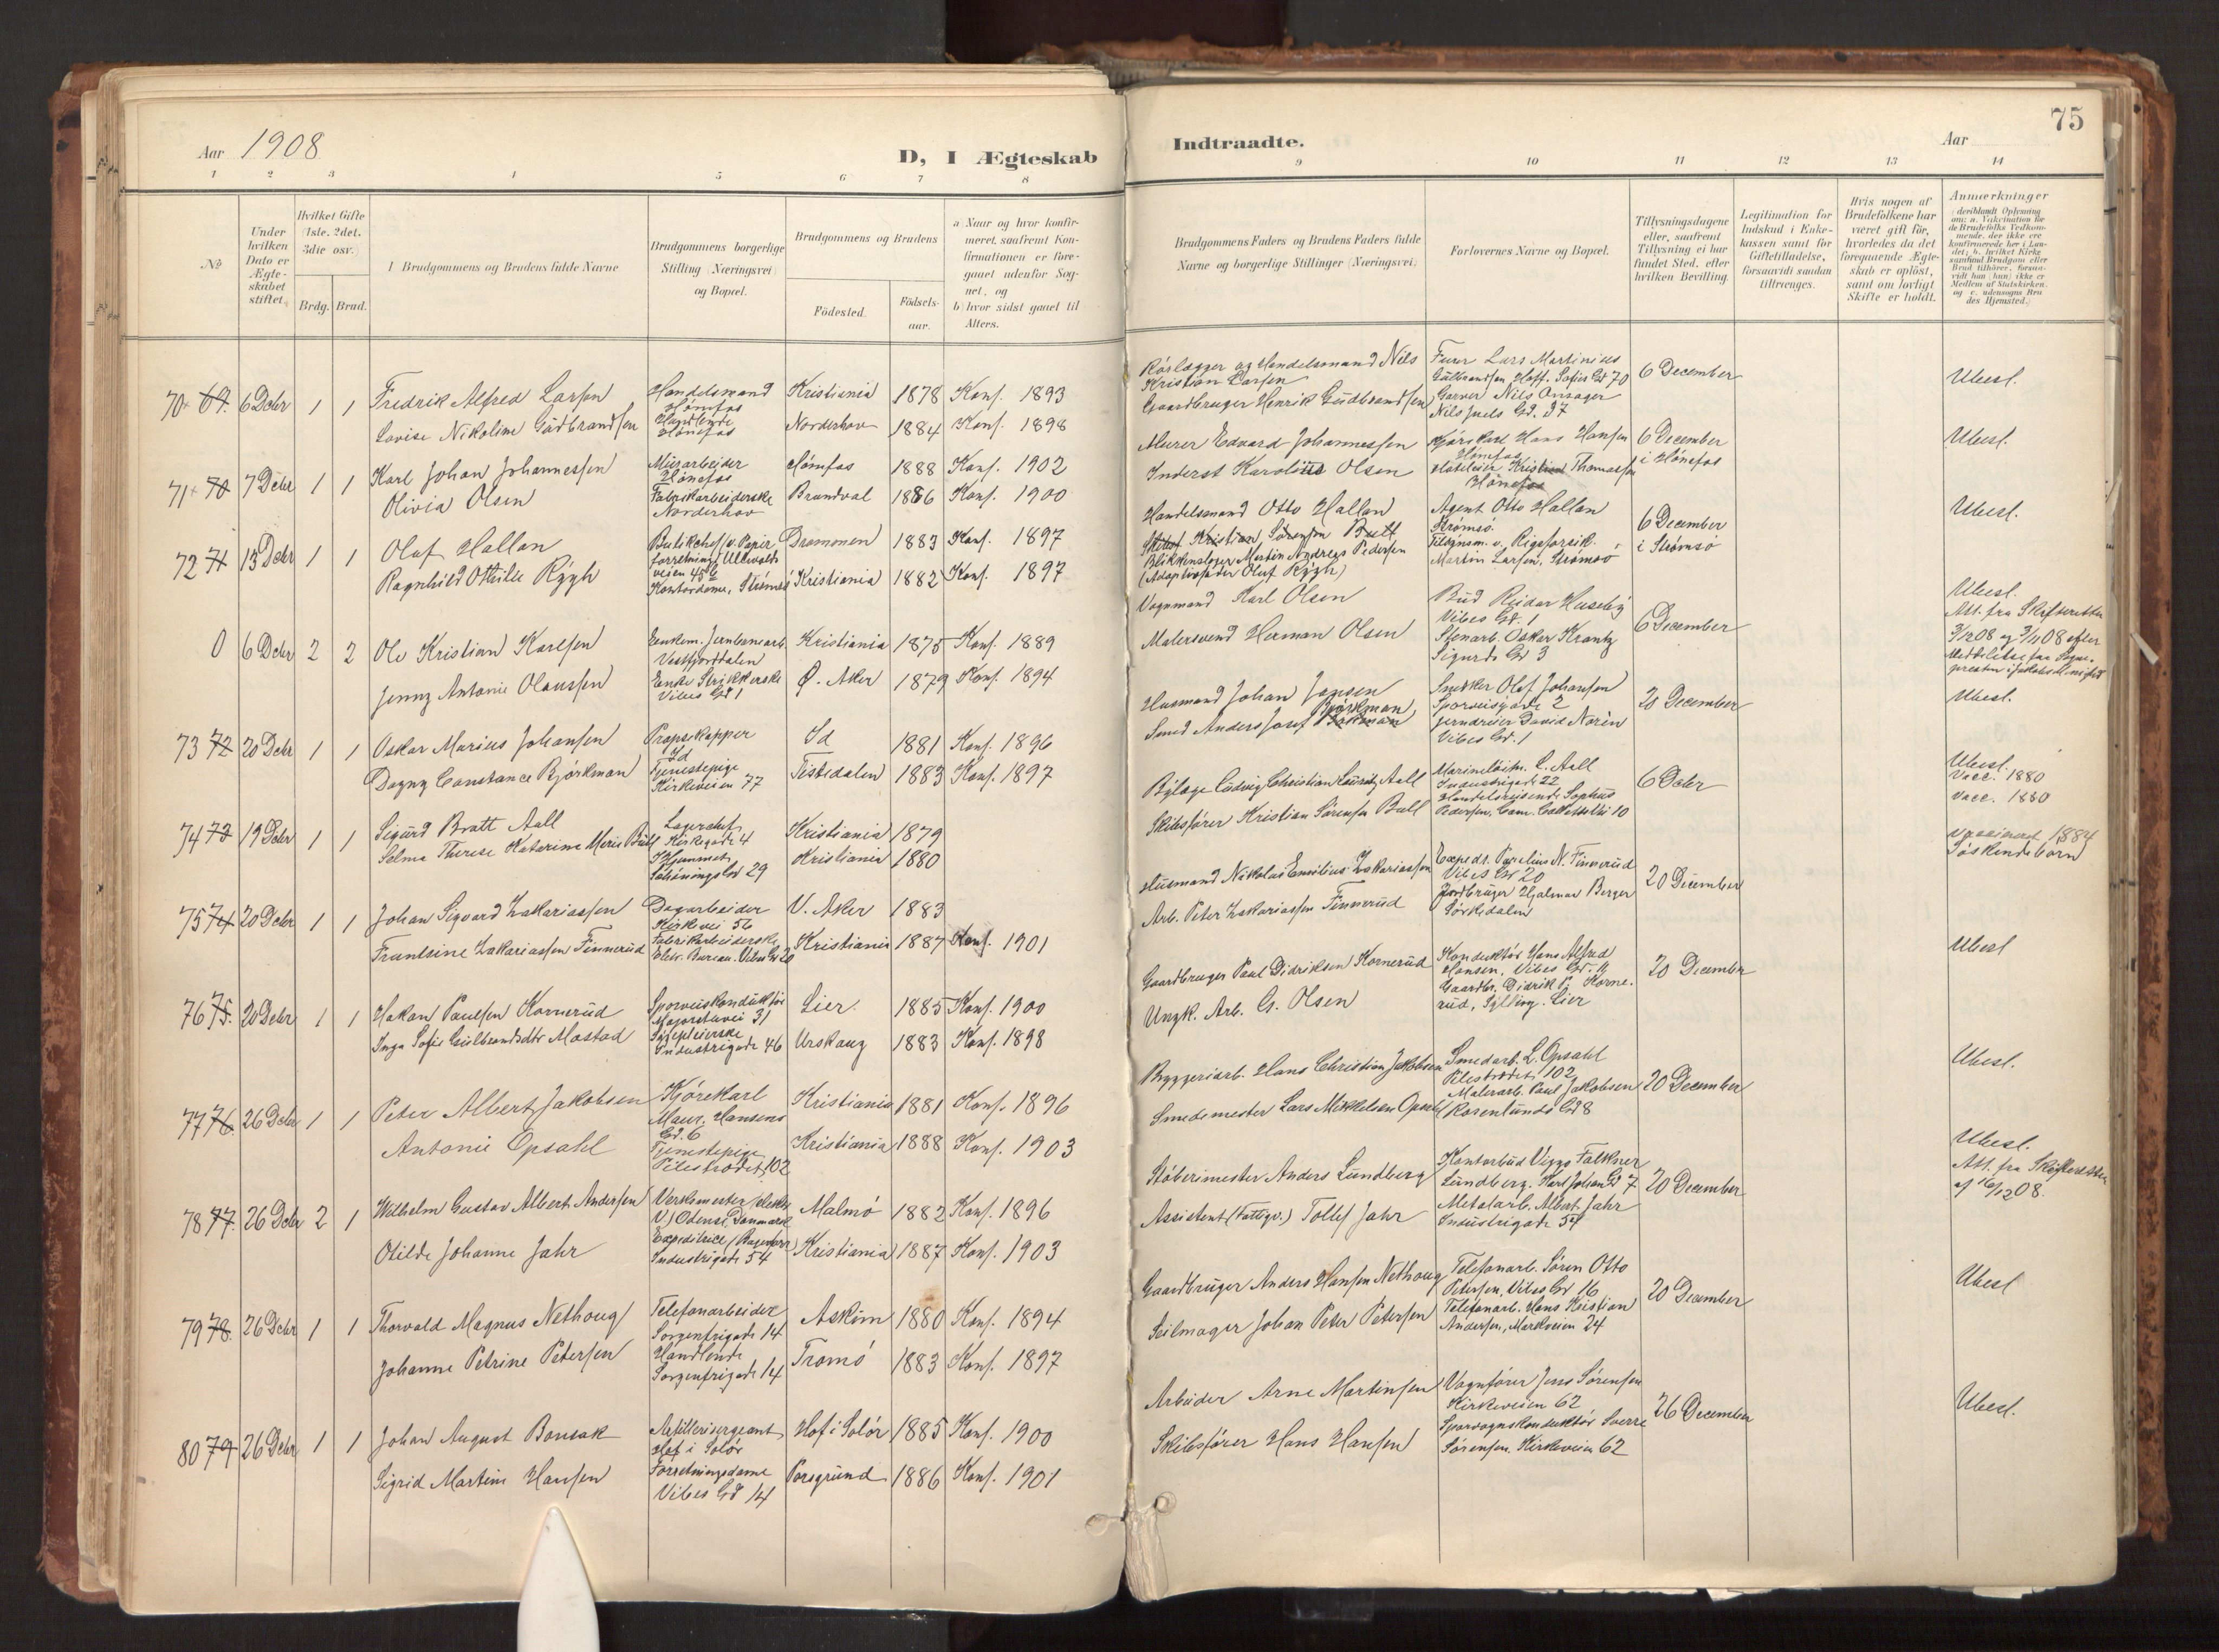 Aar 1908
D, I Ægteskab
1 2 3 4 5 6 7 8
No
Under hvilken Dato er Ægteskabet stiftet.
Hvilket Gifte (1ste. 2det. 3die osv.)
Brdg. Brud.
Brudgommens og Brudens fulde Navne
Brudgommens borgerlige Stilling (Næringsvei) og Bopæl.
Brudgommens og Brudens
Födested.
Födselsaar.
a) Naar og hvor konfirmeret, saafremt Konfirmationen er foregaaet udenfor Sognet, og
b) hvor sidst gaaet til Alters.
70 69. 6 Dcbr 1 1 Fredrik Alfred Larsen Handelsmand Hønefos Kristiania 1878 Konf. 1893
Lovise Nikoline Gudbrandsen Handlende Hønefos Norderhov 1884 Konf. 1898
71 70 7 Dcbr 1 1 Karl Johan Johannessen Murarbeider Hønefos Hønefos 1888 Konf. 1902
Olivia Olsen Fabrikarbeiderske Norderhov Brandval 1886 Konf. 1900
72 71 13 Dcbr 1 1 Olaf Hallan Butikchef v. Papirforretning, Ullevoldsveien Drammen 1883 Konf. 1897
Ragnhild Othilie Rygh Kontordame, Strømsø Kristiania 1882 Konf. 1897
0 6 Dcbr 2 2 Ole Kristian Karlsen Enkem. Jernbanearb. Vestfjorddalen Kristiania 1875 Konf. 1889
Jenny Antonie Olaussen Enke Strikkerske Vibes Gd 1 Ø. Aker 1879 Konf. 1894
73 72 20 Dcbr 1 1 Oskar Marius Johansen Propskapper Id Id 1881 Konf. 1896
Dagny Constance Bjørkman Tjenestepige Kirkeveien 77 Tistedalen 1883 Konf. 1897
74 73 19 Dcbr 1 1 Sigurd Bratt Aall Lagerchef Kirkegade 4 Kristiania 1879
Selma Therese Katarina Marie Bull Hjemmet Schøningsgd 29 Kristiania 1880
75 74 20 Dcbr 1 1 Johan Sigvard Zakariassen Dagarbeider Kirkevei 56 V. Aker 1883
Frantsine Zakariassen Finnerud Fabrikarbeiderske Elektr. Bureau. Vibes Gd 20 Kristiania 1887 Konf. 1901
76 75. 20 Dcbr 1 1 Hakon Paulsen Kornerud Sporveiskonduktør Majorstuvei 31 Lier. 1885 Konf. 1900
Inga Sofie Gulbrandsdtr Mostad Sypleierske Industrigade 46 Urskoug 1883 Konf. 1898
77 76. 26 Dcbr 1 1 Peter Albert Jakobsen Kjørekarl Maur. Hansens Gd. 6 Kristiania 1881 Konf. 1896
Antonie Opsahl Tjenestepige Pilestrædet 102 Kristiania 1888 Konf. 1903
78 77. 26 Dcbr 2 1 Wilhelm Gustav Albert Andersen Verksmester (elektr. V.) Odense, Danmark Malmø 1882 Konf. 1896
Otilde Johanne Jahr Expeditrice Industrigade 54 Kristiania 1887 Konf. 1903
79 78. 26 Dcbr 1 1 Thorvald Magnus Nethoug Telefonarbeider Sorgenfrigade 14 Askim 1880 Konf. 1894
Johanne Petrine Petersen Handlende Sorgenfrigade 14 Tromsø 1883 Konf. 1897
80 79 26 Dcbr 1 1 Johan August Bonsak Artillerisergeant Hof i Solør Hof i Solør 1885 Konf. 1900
Sigrid Martine Hansen Forretningsdame Vibes Gd 14 Porsgrund 1886 Konf. 1901
75
Indtraadte.
Aar
9 10 11 12 13 14
Brudgommens Faders og Brudens Faders fulde Navne og borgerlige Stillinger (Næringsvei)
Forlovernes Navne og Bopæl.
Tillysningsdagene eller, saafremt Tillysning ei har fundet Sted, efter hvilken Bevilling.
Legitimation for Indskud i Enkekassen samt for Giftetilladelse, forsaavidt saadan tiltrænges.
Hvis nogen af Brudefolkene har været gift för, hvorledes da det foregaaende Ægteskab er oplöst, samt om lovligt Skifte er holdt.
Anmærkninger (deriblandt Oplysning om: a. Vakcination for de Brudefolks Vedkommende, der ikke ere konfirmerede her i Landet; b. hvilket Kirkesamfund Brudgom eller Brud tilhörer, forsaavidt han (hun) ikke er Medlem af Statskirken, og c. udensogns Brudes Hjemsted.)
Rørlægger og Handelsmand Nils Kristian Larsen Furer Lars Martinius Gulbrandsen, Hoff. Sofies Gd 70 6 December Ubesl.
Gaardbruger Henrik Gudbrandsen Garver Nils Onsager Nils Juels Gd. 37
Murer Edvard Johannessen Kjørekarl Hans Hansen Hønefos 6 December i Hønefos Ubesl.
Inderst Karolius Olsen Kristian Thomassen Hønefos
Handelsmand Otto Hallan Agent Otto Hallan Strømsø. 6 December i Strømsø Ubesl.
Skibsf. Kristian Sørensen Bull
Blikkenslager Martin Andreas Pedersen (Adoptivfader Oluf Rygh) Tilsynsm. v. Rigsforsik. Martin Larsen, Strømsø
Vognmand Karl Olsen Bud Reidar Huseby Vibes Gd. 1 6 December Ubesl.
Malersvend Herman Olsen Stenarb. Oskar Krantz Sigurds Gd 3 Att. fra Skifteretten 3/12 08 og 9/11 08 efter Meddelelse fra Sognepresten i Jakobs Menighed
Husmand Johan Jansen Snedker Olof Johansen Sporveisgade 2 20 December Ubesl.
Smed Anders Josef Bjørkman Jerndreier David Norén Vibes Gd. 1
Byfoge Ludvig Christian Lauritz Aall Marineløitn. C. Aall Industrigade 22 6 Dcbr Ubesl. Vacc. 1880
Skibsfører Kristian Sørensen Bull Handelsreisende Sophus Pedersen, Cam. Colletts Vei 10 Vacc. 1880
Husmand Nikolai Emilius Zakariassen Exped. N. Finnerud Vibes Gd 20 20 December vaccineret 1884 Søskendebørn
Arb. Peter Zakariassen Finnerud Jordbruger Hjalmar Berger Sørkedalen
Gaardbruger Paul Didriksen Kornerud Konduktør Hans Alfred Hansen, Vibes Gd. 11 20 December Ubesl
Ungk. Arb. G. Olsen Gaardbr. Didrik P. Kornerud, Sylling. Lier
Bryggeriarb. Hans Christian Jakobsen Smedarb. L. Opsahl Pilestrædet 102 20 December Ubesl.
Smedemester Lars Mikkelsen Opsahl Malerarb. Paul Jakobsen Rosenlunds Gd 8
Støberimester Anders Lundberg Kontorbud Viggo Falkner Lundberg. Karl Johan Gd 7 20 December Ubesl. Att. fra Skifteretten af 16/12 08.
Assistent (Fattigv.) Tollef Jahr Metalarb. Albert Jahr Industrigade 54
Gaardbruger Anders Hansen Nethoug Telefonarb. Søren Otto Petersen, Vibes Gd 16 20 December Ubesl
Seilmager Johan Peter Petersen Telefonarb. Hans Kristian Andersen, Markveien 24
Arbeider Arne Martinsen Vognfører Jens Sørensen Kirkeveien 62 26 December Ubesl.
Skibsfører Hans Hansen Sporvognskonduktør Sverre Sørensen. Kirkeveien 62